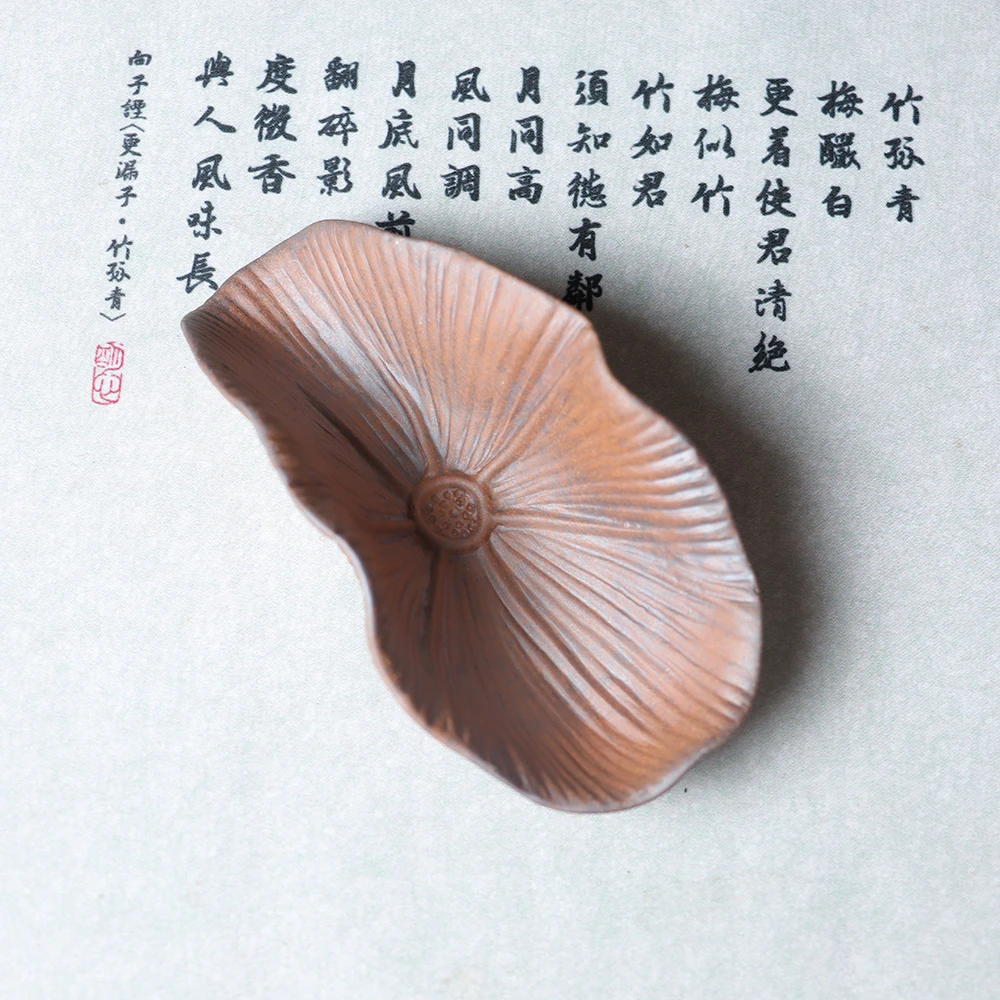 竹孤青
梅釅白
更着使君清絶
梅似竹
竹如君
須知德有鄰
月同高
風同調
月底風前
翻碎影
度微香
與人風味長
向子諲〈更漏子・竹孤青〉